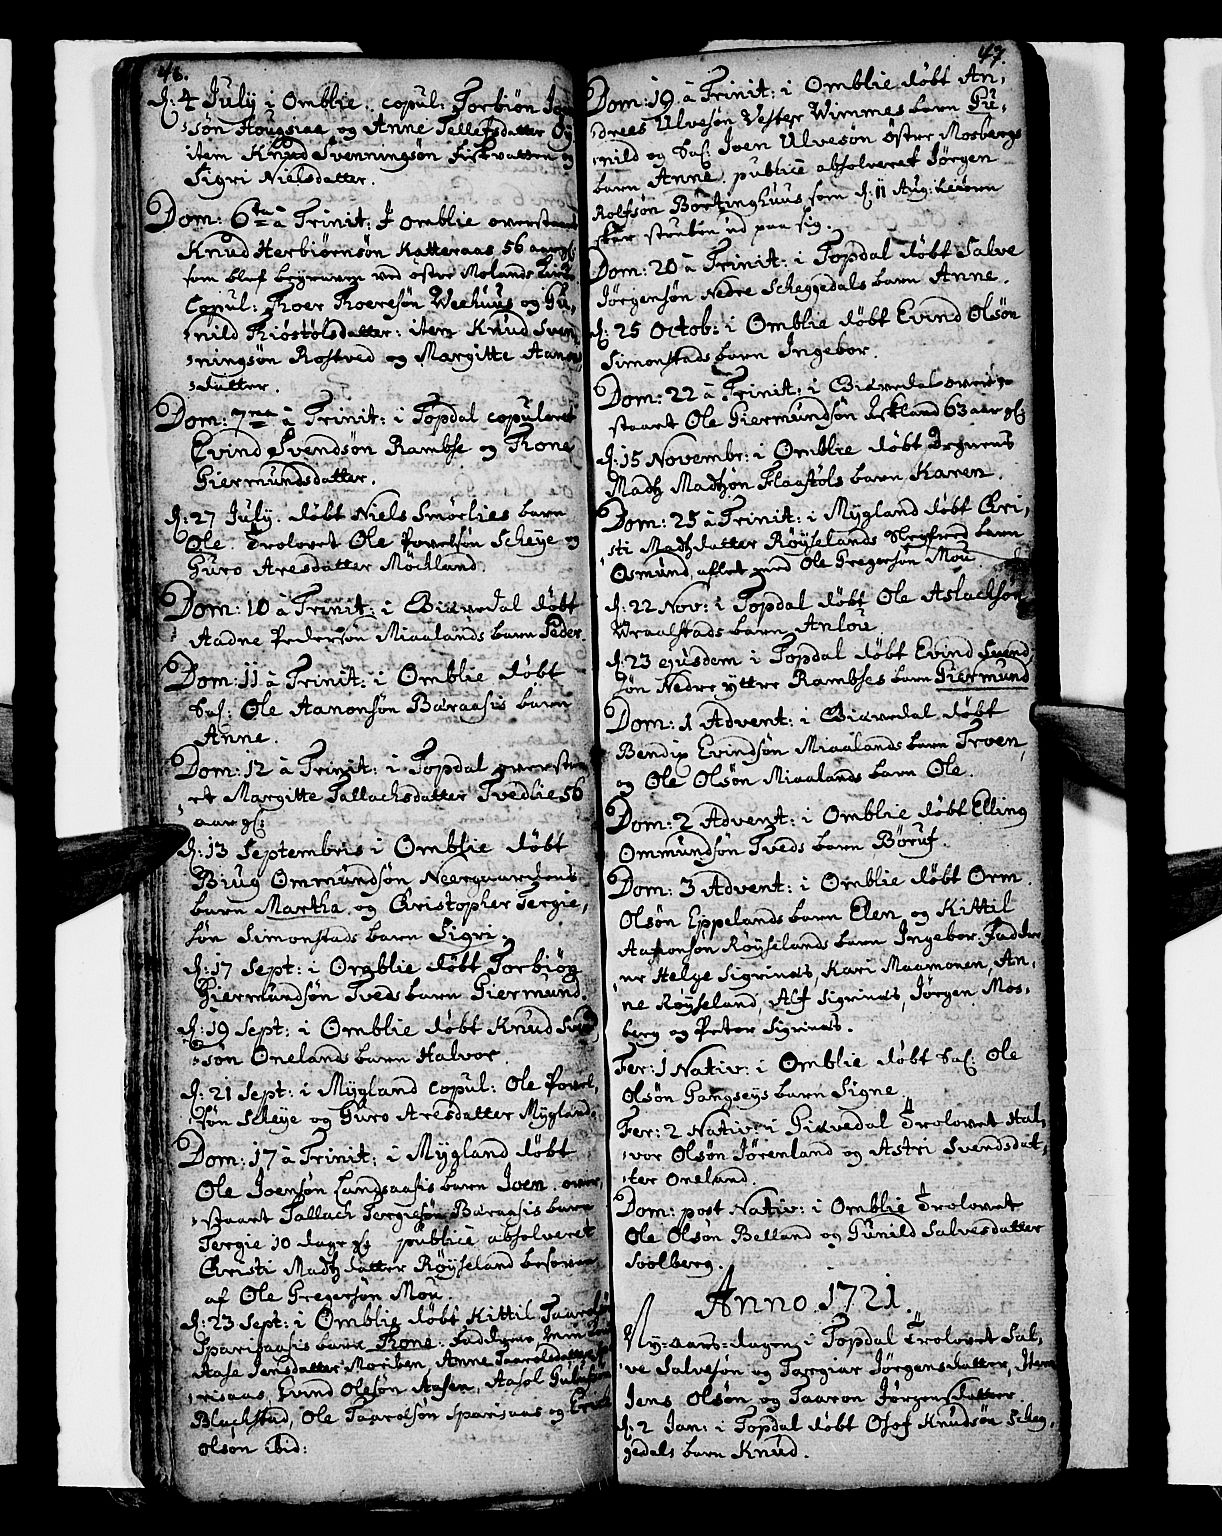 46.
d: 4 July i Omblie. copul: Torbiøn
søn Hougsiaae og Anne Tellefsdatter
item Knud Svenningsøn Fiskvatten og
Sigri Nielsdatter.
Dom: 6ta â Trinit: I Omblie overstaaet
Knud Herbiørnsøn Katteraas 56 aar gl
som blef begraven ved østre Molands
Copul: Roer Roersøn Weehuus og Gu,
,nild Kiøstølsdatter: item Knud Sven,
,ningsøn Rostved og Margitte Aanon,
,datter.
Dom: 7ma â Trinit: i Topdal copuleret
Evind Svendsøn Rambse og Tone
Giermundsdatter.
d: 27 July. døbt Niels Smørlies barn
Ole. Trolovet Ole Povelsøn Scheye og
Guro Aresdatter Möchland.
Dom: 10 â Trinit: i Giøvedal døbt
Aadne Pedersøn Miaalands barn Peder.
Dom: 11 â Trinit: i Omblie døbt
Sal: Ole Aanonsøn Baraasis barn
Anne.
Dom: 12 â Trinit: i Topdal overstaa,
,et Margitte Tallachsdatter Tvedlie 56
aar gl:
d: 13 Septembris i Omblie døbt
Briug Ommundsøn Neergaardens
barn Martha. og Christopher Tergie,
søn Simonstads barn Sigri.
d: 17 Sept: i Omblie døbt Torbiøn
Giermundsøn Tveds barn Giermund.
d: 19 Sept: i Omblie døbt Knud
søn Onelands barn Halvor.
d: 21 Sept: i Mygland copul: Ole Povel,
søn Scheye og Guro Aresdatter Mygland.
Dom: 17 â Trinit: i Mygland døbt
Ole Joensøn Landsaasis barn Joen. over,
,staaet Tallach Tergiesøn Baraasis barn
Tergie 10 dage gl publicè absolveret
Christi Madtzdatter Røyseland besovet
af Ole Gregersøn Mou.
d: 23 Sept: i Omblie døbt Kittil Taarolsøn
Sparisaasis barn Tone. Faddere
Aase Jensdatter Moriben, Anne Taarolsdatter
,risaas, Evind Olesøn Aasen, Aasol
Blachstad, Ole Taarolsøn Sparisaas og
Olson ibid:
47.
Dom: 19 â Trinit: i Omblie døbt An,
,drees Ulvesøn Vester Wimmes barn Gu,
,nild og Sal: Joen Ulvesøn øster Mosbergs
barn Anne. publicè absolveret Jørgen
Rolfsøn Børtinghuus som d: 11 Aug:
skar struben ud paa sig.
Dom: 20 â Trinit: i Topdal døbt Salve
Jørgensøn Nedre Scheggedals barn Anne.
d: 25 Octob: i Omblie døbt Evind Olsøn
Simonstads barn Ingebor.
Dom: 22 â Trinit: i Giøvedal over,
staaet Ole Giermundsøn Askland 63 aar gl
d: 15 Novembr: i Omblie døbt Degnens
Madtz Madtzøn Flaastøls barn Karen.
Dom: 25 â Trinit: i Mygland døbt Chri,
sti Madtzdatter Røyselands Slegfred barn
Osmund, aflet med Ole Gregersøn Mou.
d: 22 Nov: i Topdal døbt Ole Aslachsøn
Wraalstads barn Anlou
d: 23 ejusdem i Topdal døbt Evind Svend,
søn Nedre yttre Rambses barn Giermund
Dom: 1 Advent: i Giøvedal døbt
Bendix Evindsøn Miaalands barn Troen,
og Ole Olsøn Miaalands barn Ole.
Dom: 2 Advent: i Omblie døbt Elling
Ommundsøn Tveds barn Børuf.
Dom: 3 Advent: i Omblie døbt Orm
Olsøn Eppelands barn Elen, og Kittil
Aanonsøn Røyselands barn Ingebor. Fadder
,ne Helge Sigrinæs, Kari Maamonen, An,
ne Røyseland, Alf Sigrinæs, Jørgen Mos,
berg og Peter Sigrinæs.
Fer: 1 Nativ: i Omblie døbt Sal: Ole
Olsøn Gangseys barn Signe
Fer: 2 Nativ: i Giøvedal Trolovet Hal,
,vor Olsøn Jørenland og Astri Svendsdat,
,ter Oneland.
Dom: post Nativ: i Omblie Trolovet
Ole Olsøn Belland og Gunild Salvesdatter
Soolberg.
Anno 1721.
Ny-aars-dagen i Topdal Trolovet Sal,
,ve Salvesøn og Torgiær Jørgensdatter, Item
Jens Olsøn og Taaron Jørgensdatter
d: 2 Jan: i Topdal døbt Olof Knudsøn Scheg,
gedals barn Knud.